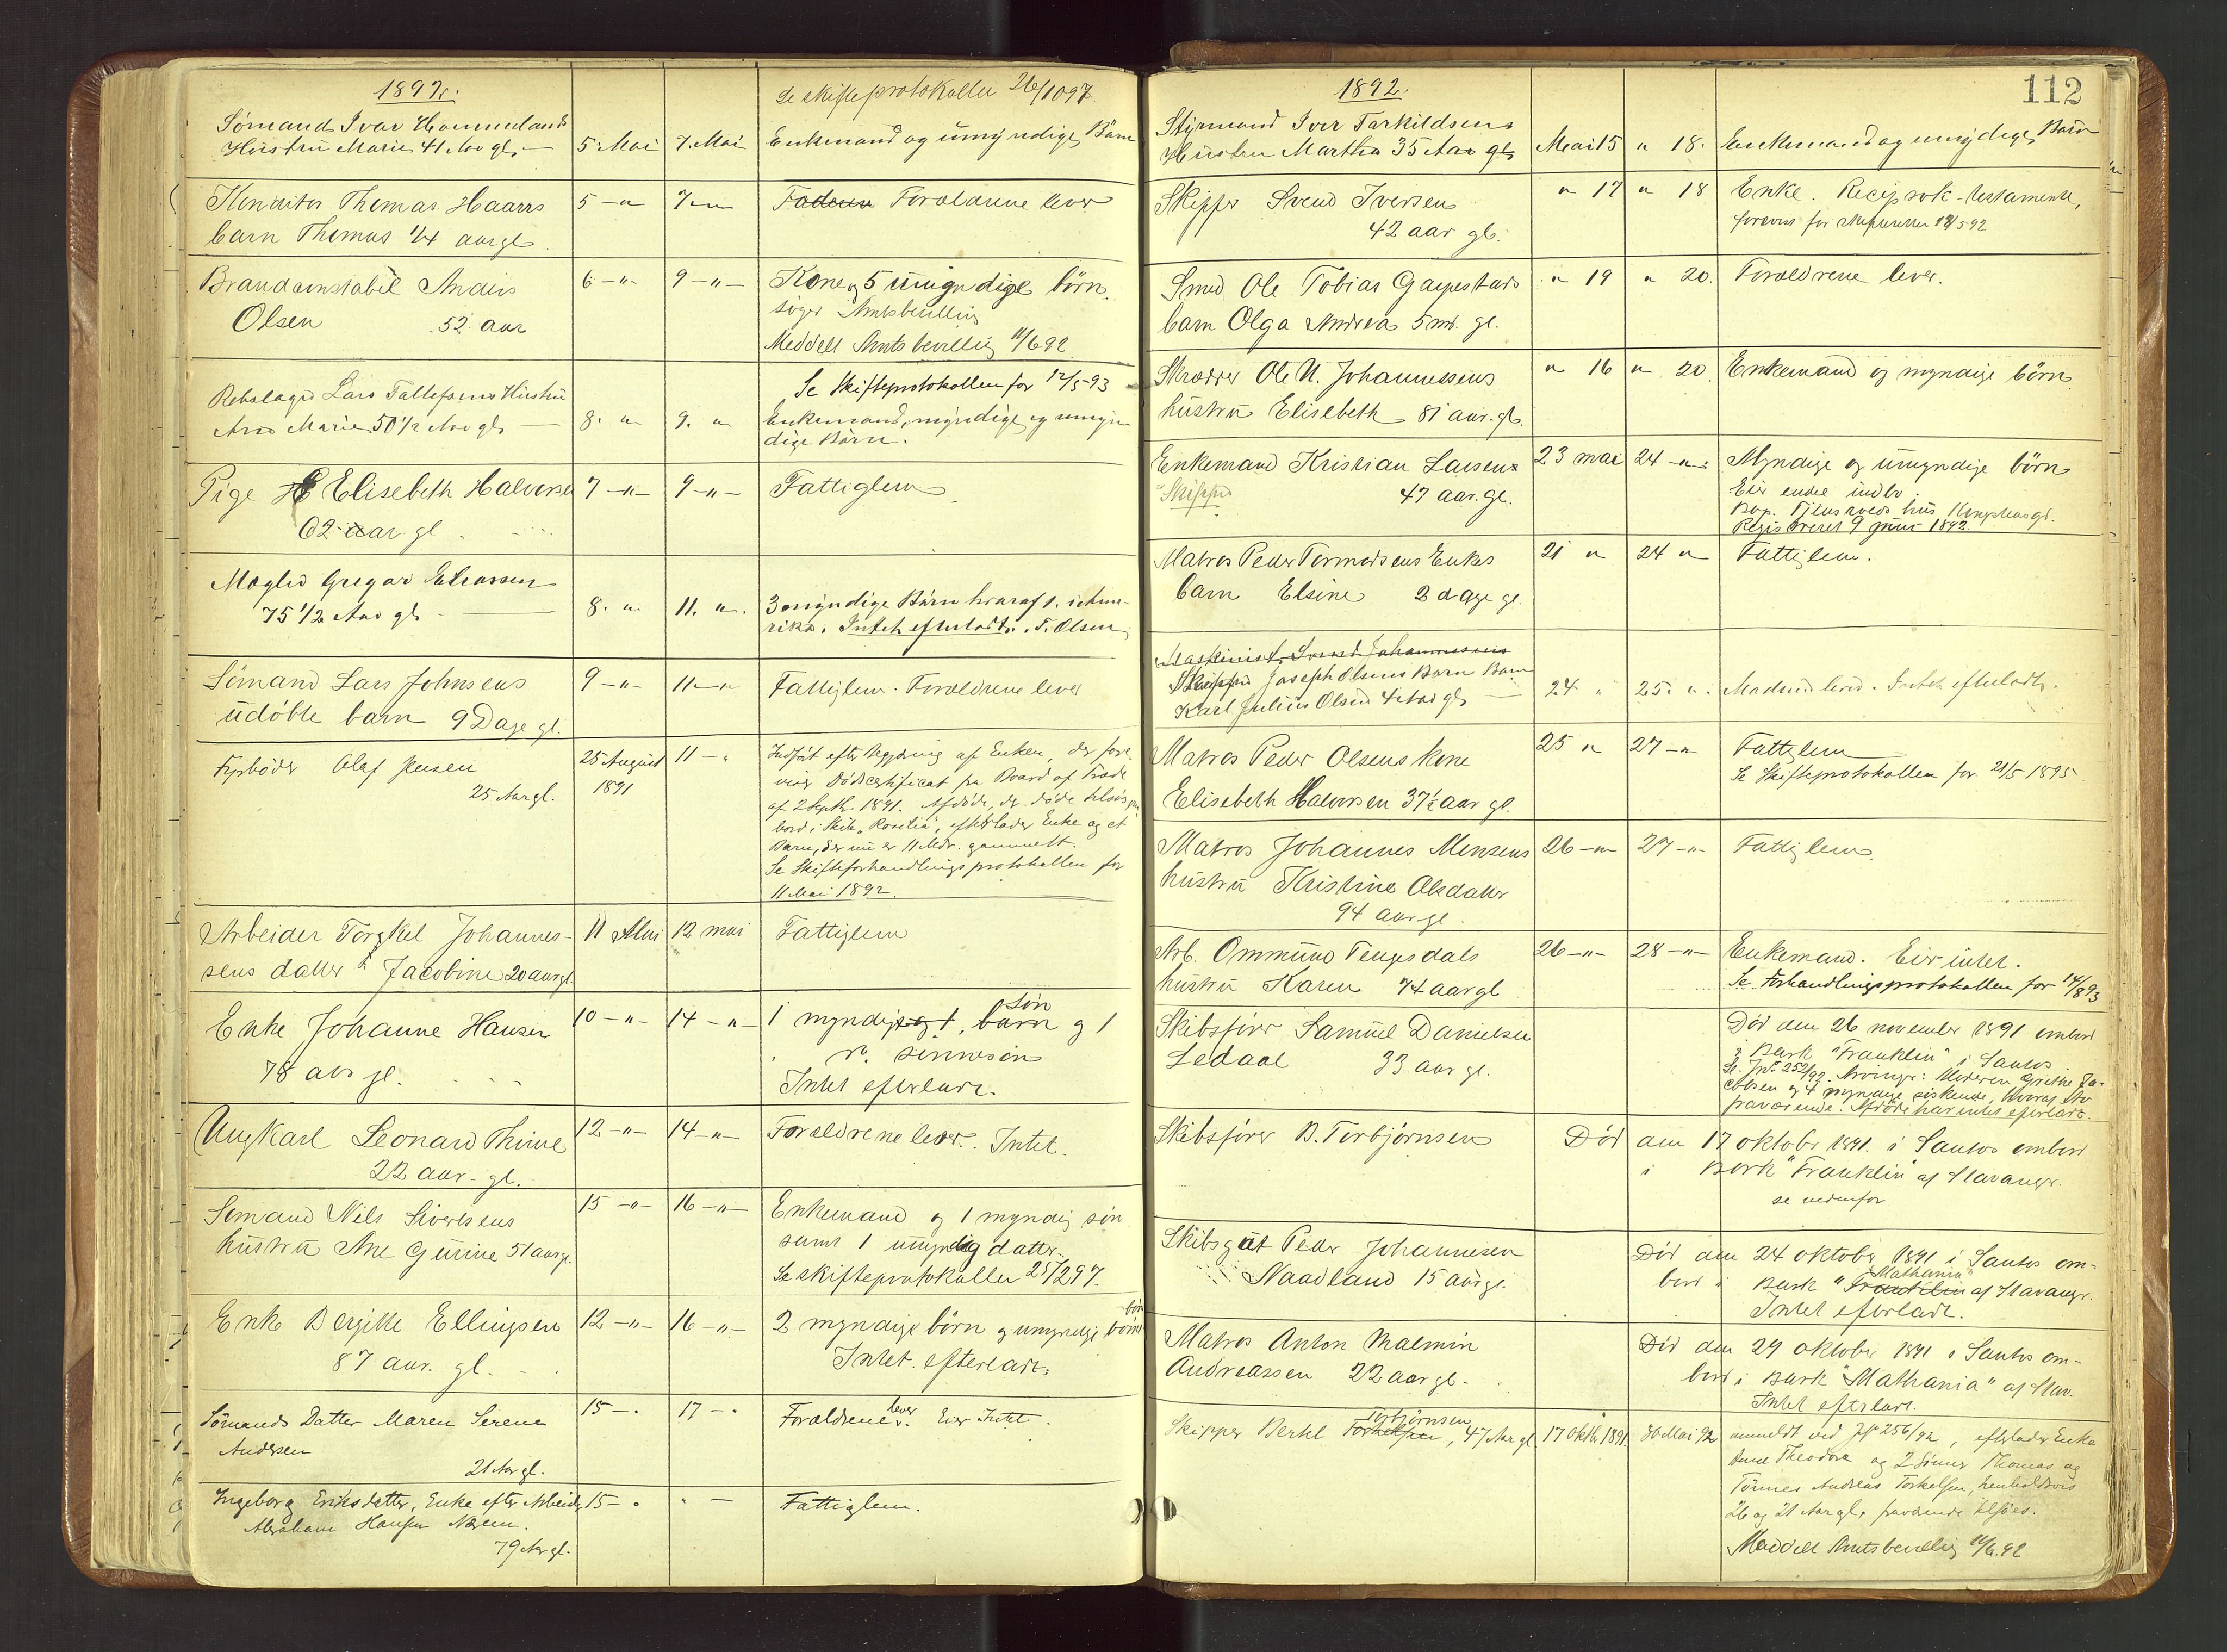 1892.
Se skifteprotokollen 26/10 97.
Sømand Ivar Hommelands
Hustru Marie 41 Aar gl. — 5. Mai 7. Mai Enkemand og umyndige Børn
Konditor Thomas Haarrs 5 -"- 7 -"- Faderen Forældrene lever
barn Thomas 1/4 aar gl.
Brandconstabel Andeas 6 -"- 9 -"- Kone og 5 umyndige børn.
Olsen 52 aar søger Amtsbevilling
Meddelt Amtsbevilling 11/6 92
Se Skifteprotokollen for 12/5-93
Rebslager Lars Tallefsens Hustru
Ane Marie 50 1/2 Aar gl. — 8. " 9. " Enkemand, myndige og umyn
dige Børn.
Pige Elisebeth Halvorsen 7 -"- 9 -"- Fattiglem
62 aar gl
Mægler Gregar Eliassen
75 1/2 Aar gl. — 8. " 11. ". 3 myndige Børn hvoraf 1. i Ame-
rika. Intet efterladt. T. Olsen
Sømand Lars Johnsens 9 -"- 11 -"- Fattiglem. Forældrene lever
udøbte barn 9 Dage gl.
Fyrbøder Olaf Jensen 25 August 11 - " Indført efter Begjæring af Enken, der fore-
25 Aar gl. 1891 viser Dødscertificat fra Board of Trade
af 2 Septbr. 1891. Afdøde, der døde tilsøs om
bord i Skib "Rosilia", efterlader Enke og et
Barn, der nu er 11 Mdr. gammelt.
Se Skifteforhandlingsprotokollen for
11 Mai 1892.
Arbeider Torgkel Johannes- 11 Mai 12 mai Fattiglem
sens datter Jacobine 20 aar gl
Enke Johanne Hansen 10 -"- 14 -"- 1 myndig og 1, barn søn og 1
78 aar gl. sinnesøn
Intet efterladt.
Ungkarl Leonard Thime 12 -"- 14 -"- Forældrene lever. Intet.
22 aar. gl.
Sømand Nils Sivertsens 15 -"- 16 -"- Enkemand og 1 myndig søn
hustru Ane Gurine 51 aar gl. samt 1 umyndig datter.
Se skifteprotokollen 25/2 97.
Enke Bergitte Ellingsen 12 -"- 16 -"- 2 myndige børn og umyndige børne
børn
87 aar. gl. Intet. efterladt.
Sømands Datter Maren Serene 15 - " 17 - " Forældrene lever. Eier Intet.
Andersen
21 Aar gl.
Ingeborg Eriksdatter, Enke efter Arbeider 15 - " " - Fattiglem.
Abraham Hansen Næem.
79 Aar gl.
112
1892.
Styrmand Iver Tarkildsens
Hustru Martha 35 Aar gl. Mai 15 " 18. Enkemand og umydige Børn
Skipper Svend Iversen " 17 " 18 Enke. Reciprok-testamente,
42 aar gl. forevist for skifteretten 18/5 92
Smed Ole Tobias Gaupestads " 19 " 20. Forældrene lever.
barn Olga Andrea 5 md. gl.
Skræder Ole N. Johannessens " 16 " 20. Enkemand og myndige børn.
hustru Elisebeth 81 aar. gl.
Enkemand Kristian Larsens 23 mai 24 -"- Myndige og umyndige børn
Skipper 47 aar. gl. Eier endel indbo.
Registreret 9 juni 1892
Matros Peder Tormodsens Enkes 21 " 24 " Fattiglem.
barn Elsine 2 dage gl.
Maskinist Svend Johannessens
Skipper Joseph Olsens Barn Barn
Karl Julius Olsen 4 Aar gl. — 24 " 25. ". Moderen lever. Intet efterladt.
Matros Peder Olsens kone 25 " 27 -" Fattiglem
Se Skifteprotokollen for 21/5 1895.
Elisebeth Halvorsen 37 1/2 aar gl.
Matros Johannes Monsens 26 -"- 27 -"- Fattiglem
hustru Kristine Olsdatter
94 aar gl.
Arb. Ommund Tengesdals 26 -"- 28 -"- Enkemand. Eier intet.
hustru Karen 74 aar gl Se Forhandlingsprotokollen for 14/8 93
Skibsfører Samuel Danielsen Død den 26 november 1891 ombord
Ledaal 33 aar gl. i Bark "Franklin" i Santos
Se Jr. 252/92. Arvinger: Moderen Grethe Ja-
cobsen og 4 myndige søskende, hvoraf
fraværende. Afdøde har intet efterladt.
Skibsfører B. Torbjørnsen Død den 17 oktober 1891. i Santos ombord
i Bark "Franklin" af Stavanger.
se nedenfor
Skibsgut Peder Johannesen Død den 24 oktober 1891 i Santos om-
Naadland 15 aar gl. bord i Bark "Franklin Mathania" af Stavanger.
Intet efterladt.
Matros Anton Malmin Død den 29 oktober 1891 i Santos om-
Andreassen 22 aar gl. bord i Bark "Mathania" af Stav.
Intet efterladt.
Skipper Bertel Torkelsen Torbjørnsen, 47 Aar gl. 17 Oktbr 1891. 30 Mai 92 anmeldt ved J.Nr 256/92, efterlader Enke
Anne Theodora og 2 Sønner Thomas og
Tønnes Andreas Torkelsen, henholdsvis
26 og 21 Aar gl, fraværende tilsøes.
Meddelt Amtsbevilling 14/6.92